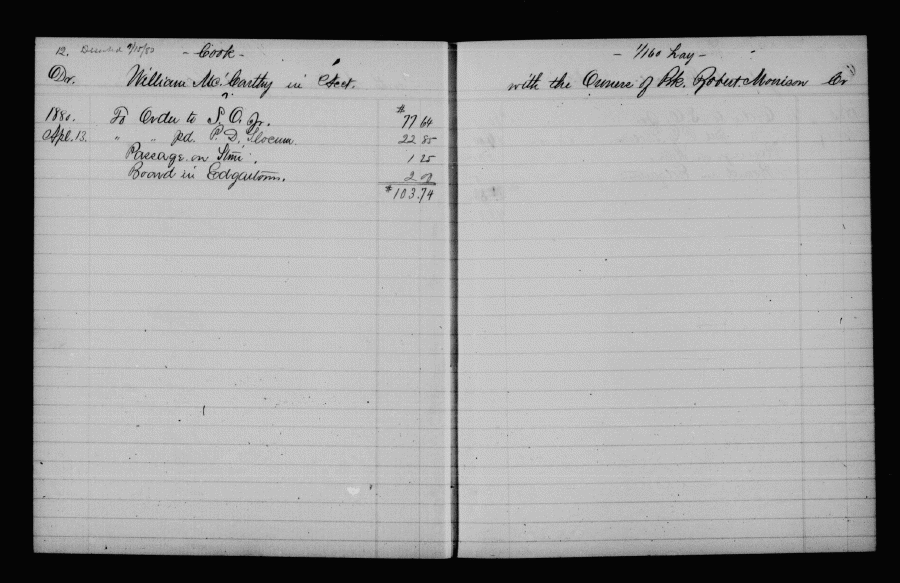 12. Deserted 9/15/80 - Cook -
Dr. William McCarthy in Acct.
1880. To Order to S. O. Jr. $77 64
Apl. 13. " " pd. P. D. Slocum 22 85
Passage on Stmr. 1 25
Board in Edgartown. 2 00
$103.74
- 1/160 Lay -
with the Owners of Bk. Robert Morrison Cr